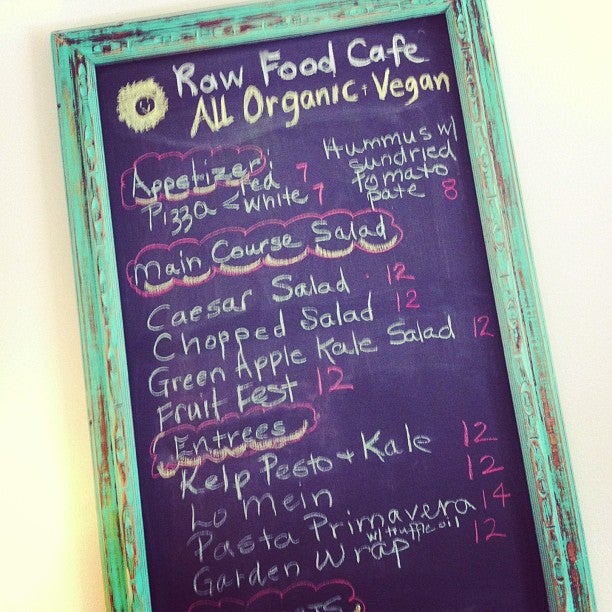 Raw Food Cafe
All Organic + Vegan
Appetizer
Pizza < Red 7
White 7
Hummus w/
sundried
tomato
pate 8
Main Course Salad
Caesar Salad 12
Chopped Salad 12
Green Apple Kale Salad 12
Fruit Fest 12
Entrees
Kelp Pesto + Kale 12
Lo Mein 12
Pasta Primavera 14
w/ truffle oil
Garden Wrap 12